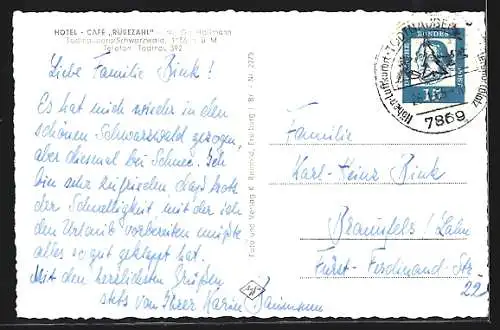 HOTEL - CAFÉ „RÜBEZAHL"
Todtnauberg/Schwarzwald, ü. M
Telefon Todtnau 392
Liebe Familie Bink!
Es hat mich wieder in den
schönen Schwarzwald gezogen,
aber diesmal bei Schnee. Ich
bin sehr zufrieden, daß trotz
der Schnelligkeit mit der ich
den Urlaub vorbereiten mußte
alles so gut geklappt hat.
Mit den herzlichsten Grüßen
stets von Ihrer Karin
Foto und Verlag K. Freiburg i. Br. - Nr. 2275
DEUTSCHE BUNDESPOST
15
Höhen-Luftkurort TODTNAUBERG
7869
Familie
Karl-Heinz Bink
Braunfels / Lahn
Fürst-Ferdinand-Str
22